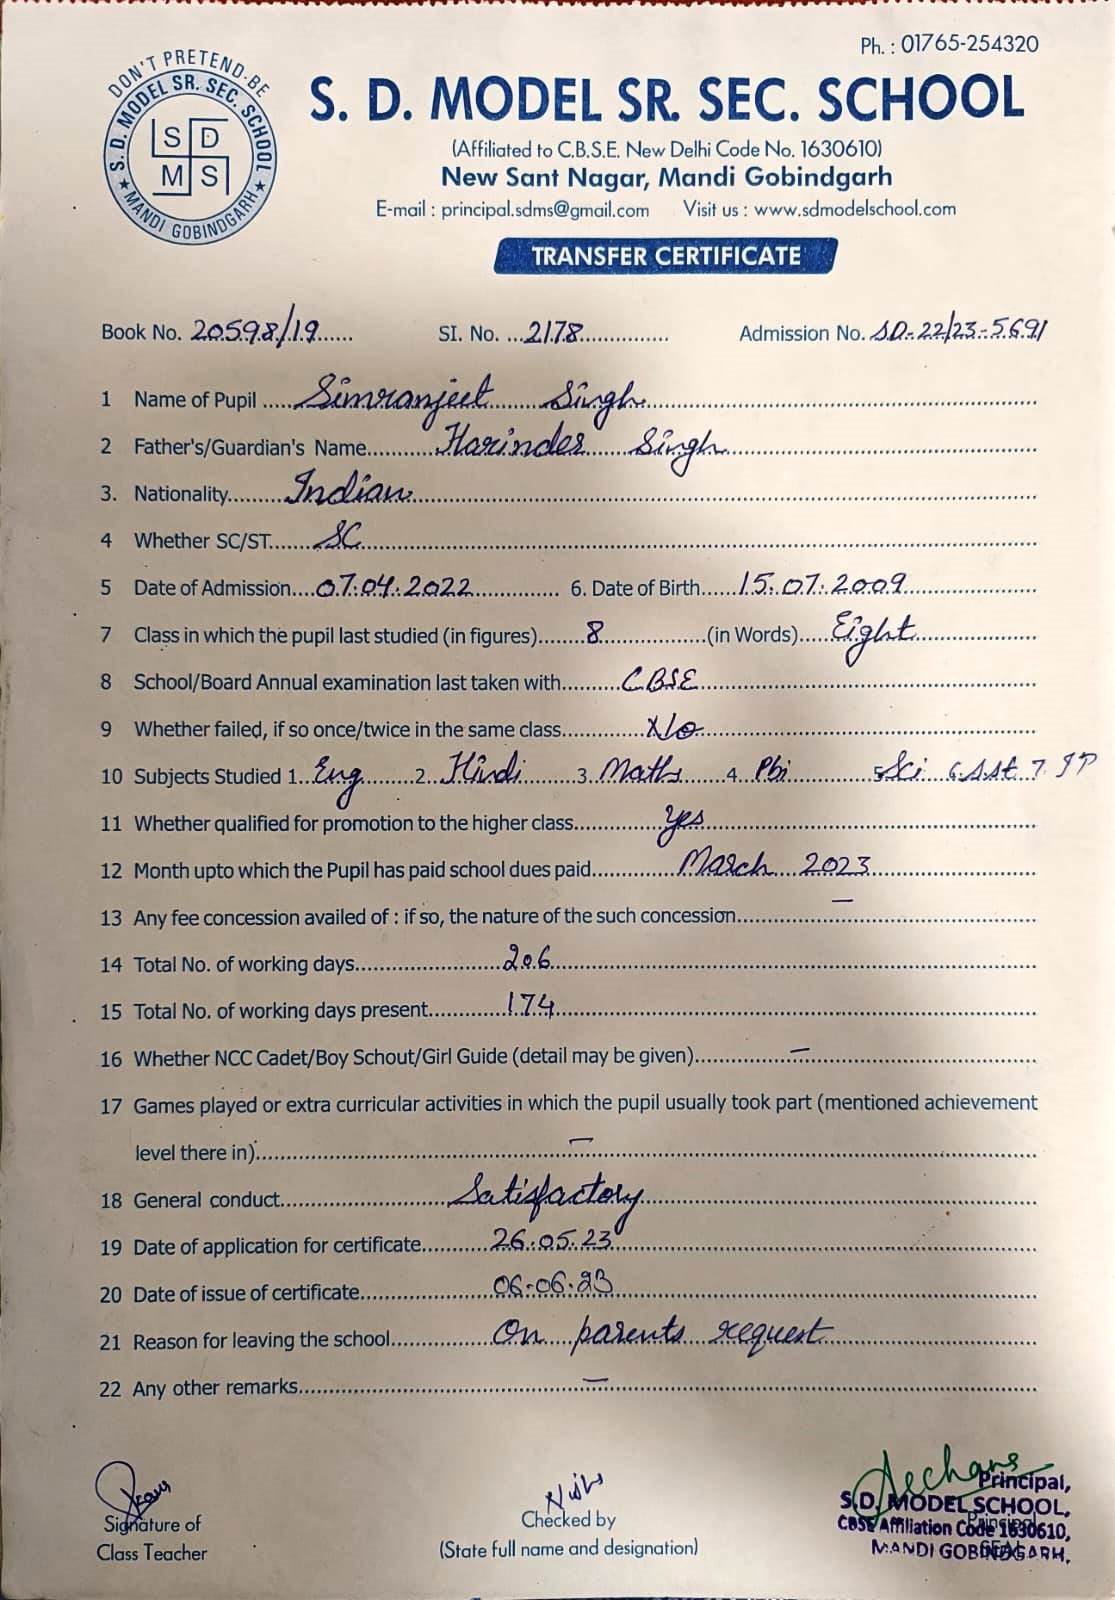 Ph. : 01765-254320
DON'T PRETEND-BE
S. D. MODEL SR. SEC. SCHOOL
★ MANDI GOBINDGARH ★
S D
M S
S. D. MODEL SR. SEC. SCHOOL
(Affiliated to C.B.S.E. New Delhi Code No. 1630610)
New Sant Nagar, Mandi Gobindgarh
E-mail : principal.sdms@gmail.com Visit us : www.sdmodelschool.com
TRANSFER CERTIFICATE
Book No. 20598/19 SI. No. 2178 Admission No. SD-22/23-5691
1 Name of Pupil Simranjeet Singh
2 Father's/Guardian's Name Harinder Singh
3. Nationality Indian
4 Whether SC/ST SC
5 Date of Admission 07.04.2022 6. Date of Birth 15.07.2009
7 Class in which the pupil last studied (in figures) 8 (in Words) Eight
8 School/Board Annual examination last taken with CBSE
9 Whether failed, if so once/twice in the same class No
10 Subjects Studied 1. Eng 2. Hindi 3. Maths 4. Pbi 5. Sci 6. S.St 7. IP
11 Whether qualified for promotion to the higher class Yes
12 Month upto which the Pupil has paid school dues paid March 2023
13 Any fee concession availed of : if so, the nature of the such concession —
14 Total No. of working days 206
15 Total No. of working days present 174
16 Whether NCC Cadet/Boy Schout/Girl Guide (detail may be given) —
17 Games played or extra curricular activities in which the pupil usually took part (mentioned achievement
level there in) —
18 General conduct Satisfactory
19 Date of application for certificate 26.05.23
20 Date of issue of certificate 06-06-23
21 Reason for leaving the school On parents request
22 Any other remarks —
Signature of
Class Teacher
Checked by
(State full name and designation)
Principal,
S.D. MODEL SCHOOL,
CBSE Affiliation Code 1630610,
MANDI GOBINDGARH.
Principal
SEAL